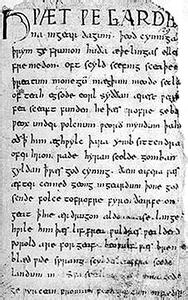 HǷÆT ǷE GARDE
na ingear dagum þeod cyninga
þrym gefrunon huða æþelingas elle
fremedon oft scyld scefing sceaþe
þreatum monegū mægþum meodo setla
ofteah egsode eorl syððan ærest ƿear
feasceaft funden he þæs frofre geba
ƿeox under ƿolcnum ƿeorð myndum þah
oð þ him æghƿylc þara ymb sittendra
ofer hron rade hyran scolde gomban
gyldan þ ƿæs god cyning ðæm eafera ƿæs
æfter cenned geong ingeardum þone god
sende folce tofrofre fyren ðearfe on
geat þ hie ær drugon aldor ase. lange
hƿile him þæs liffrea ƿuldres ƿealdend
ƿorold are forgeaf. beoƿulf ƿæs breme
blæd ƿide sprang scyldes eafera scede
landum in
geƿyrcean fromum feoh giftum